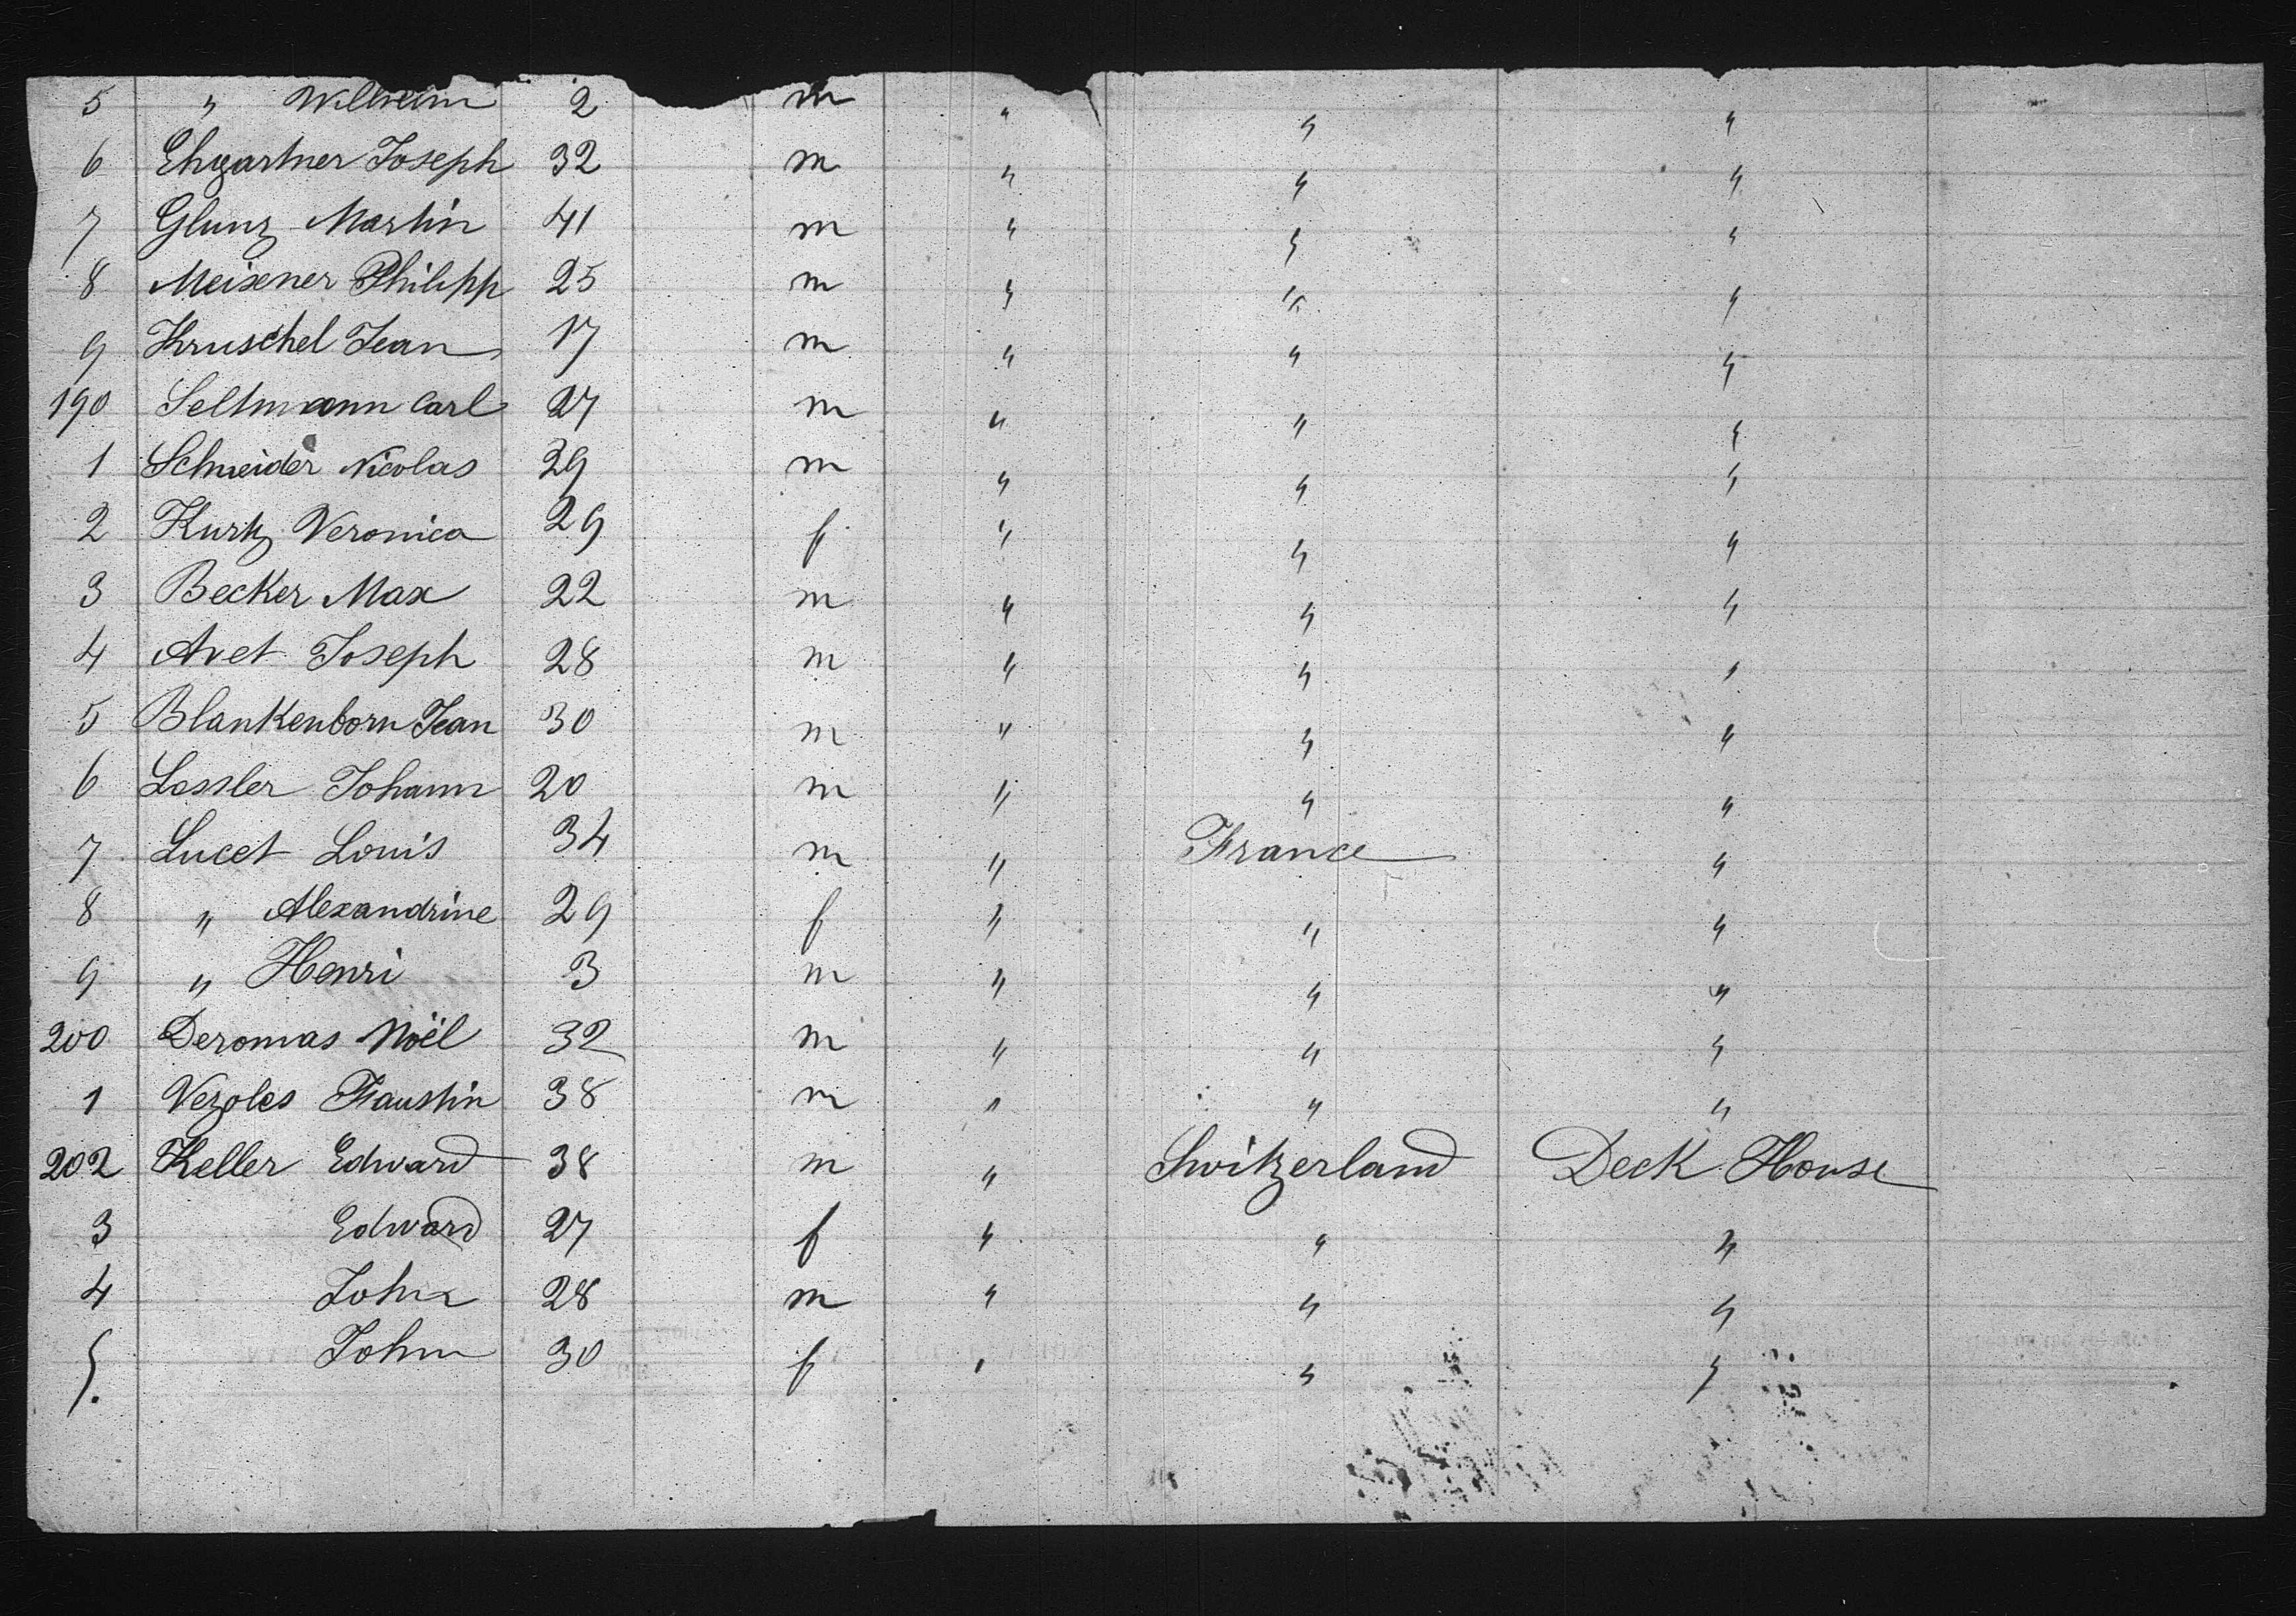 5 " Wilhelm 2 m " " "
6 Ehgartner Joseph 32 m " " "
7 Glunz Martin 41 m " " "
8 Meixener Philipp 25 m " " "
9 Kruschel Jean 17 m " " "
190 Seltmann Carl 27 m " " "
1 Schneider Nicolas 29 m " " "
2 Kurtz Veronica 29 f " " "
3 Becker Max 22 m " " "
4 Avet Joseph 28 m " " "
5 Blankenborn Jean 30 m " " "
6 Lessler Johann 20 m " " "
7 Lucet Louis 34 m " France "
8 " Alexandrine 29 f " " "
9 " Henri 3 m " " "
200 Deromas Noël 32 m " " "
1 Vezoles Faustin 38 m " " "
202 Keller Edward 38 m " Switzerland Deck House
3 Edward 27 f " " "
4 John 28 m " " "
5. John 30 f " " "